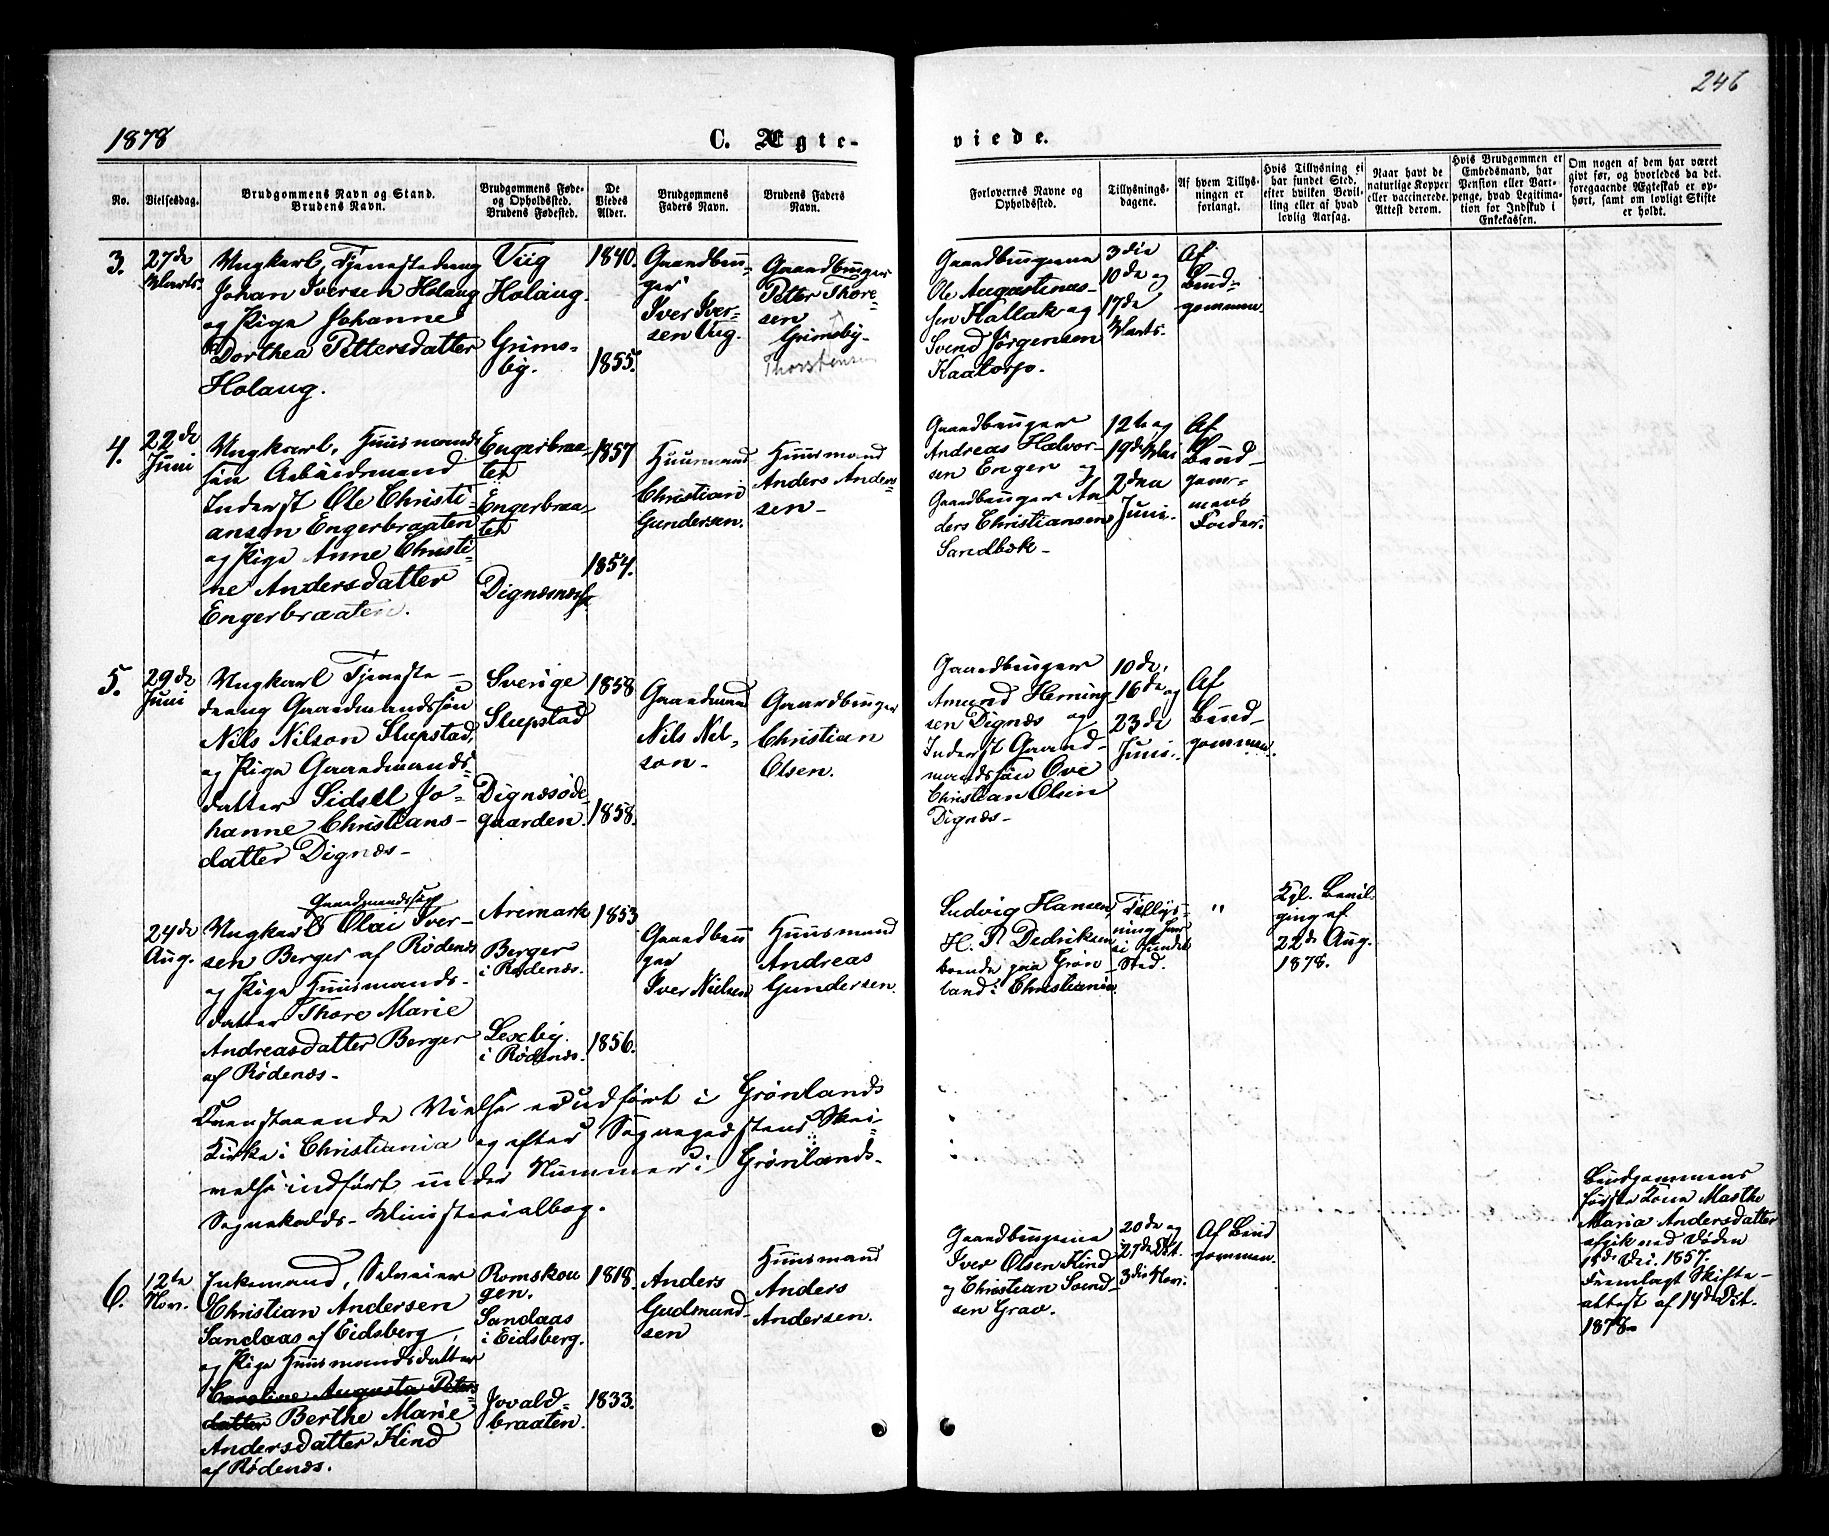 246
1878
C. Ægte-
viede.
No.
Vielsesdag.
Brudgommens Navn og Stand.
Brudens Navn.
Brudgommens Føde-
og Opholdssted.
Brudens Fødested.
De
Viedes
Alder.
Brudgommens
Faders Navn.
Brudens Faders
Navn.
Forlovernes Navne og
Opholdssted.
Tillysnings-
dagene.
Af hvem Tillys-
ningen er
forlangt.
Hvis Tillysning ei
har fundet Sted,
efter hvilken Bevil-
ling eller af hvad
lovlig Aarsag.
Naar havt de
naturlige Kopper
eller vaccinerede.
Attest derom.
Hvis Brudgommen er
Embedsmand, har
Pension eller Vart-
penge, hvad Legitima-
tion for Indskud i
Enkekassen.
Om nogen af dem har været
givt før, og hvorledes da det
foregaaende Ægteskab er op-
hørt, samt om lovligt Skifte
er holdt.
3.
27de
Marts.
Ungkarl, Tjenestedreng
Johan Iversen Holaug
og Pige Johanne
Dorthea Pettersdatter
Holaug.
Viig
Holaug.
Grims-
by.
1840.
1855.
Gaardbru-
ger
Iver Iver-
sen Viig.
Gaardbruger
Petter Thore-
sen
Grimsby-
Thorstensen
Gaardbrugerne
Ole Augustinus-
sen Hallak og
Svend Jörgensen
Kaatorp.
3die
10de og
17de
Marts.
Af
Brud-
gommen.
4.
22de
Juni
Ungkarl, Huusmands-
søn Arbeidsmand
Inderst Ole Christi-
ansen Engerbraaten
og Pige Anne Christi-
ne Andersdatter
Engerbraaten.
Engerbraa-
tet
Engerbraa-
tet
Dignæs
1857
1854.
Huusmand
Christian
Gundersen.
Huusmand
Anders Anders-
sen-
Gaardbruger
Andreas Halvor-
sen Enger og
Gaardbruger An
ders Christiansen
Sandbæk-
12te og
19de Mai
2den
Juni.
Af
Brud-
gom-
mens
Fader.
5.
29de
Juni
Ungkarl Tjeneste-
dreng Gaardmandssøn
Nils Nilson Slupstad,
og Pige Gaardmands-
datter Sidsel Jo-
hanne Christians-
datter Dignæs-
Sverige
Slupstad
Dignæsøde-
gaarden.
1858
1858.
Gaardmand
Nils Nil-
son-
Gaardbruger
Christian
Olsen.
Gaardbruger
Amund Herning-
sen Dignæs og
Inderst Gaard-
mandssøn Ove
Christian Olsen
Dignæs-
10de,
16de og
23de
Juni.
Af
Brud-
gommen.
24de
Aug.
Gaardmandssøn
Ungkarl Olai Iver-
sen Berger af Rødenæs
og Pige Huusmands-
datter Thore Marie
Andreasdatter Berger
af Rødenæs-
Aremark
Berger
i Rødenæs.
Lexeby.
i Rødenæs.
1853
1856.
Gaardbru
ger
Iver Nielsen
Huusmand
Andreas
Gundersen.
Ludvig Hansen,
H. P. Dedriksen
boende paa Grøn-
land i Christiania.
Tillys-
ning har
ei fundet
Sted.
"
Kgl. Bevil-
ging af
22de Aug.
1878.
Foranstaaende Vielse er udført i Grønlands
Kirke i Christiania og efter Sognepræstens Skri-
velse indført under Nummer i Grønlands-
Sognekalds- Ministerialbog.
6.
12te
Nov.
Enkemand, Selveier
Christian Andersen
Sandaas af Eidsberg,
og Pige Huusmandsdatter
Caroline Augusta Peters
datter Berthe Marie
Andersdatter Kind
af Rødenæs.
Romskou
gen.
Sandaas
i Eidsberg.
Jovald-
braaten.
1818.
1833.
Anders
Gudmund-
sen
Huusmand
Anders
Andersen.
Gaardbrugerne
Iver Olsen Kind
og Christian Svend-
sen Grav.
20de og
27de Oct.
3die Nov.
Af Brud
gommen.
Brudgommens
første Kone Marthe
Maria Andersdatter
afgik ved Døden
15de Dec. 1857.
Fremlagt Skifte-
attest af 14de Oct.
1878-